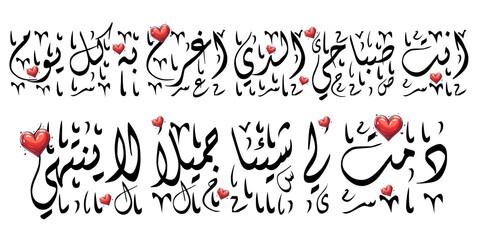 انت صباحي الذي اغرم به كل يوم
دمت لي شيئا جميلا لا ينتهي